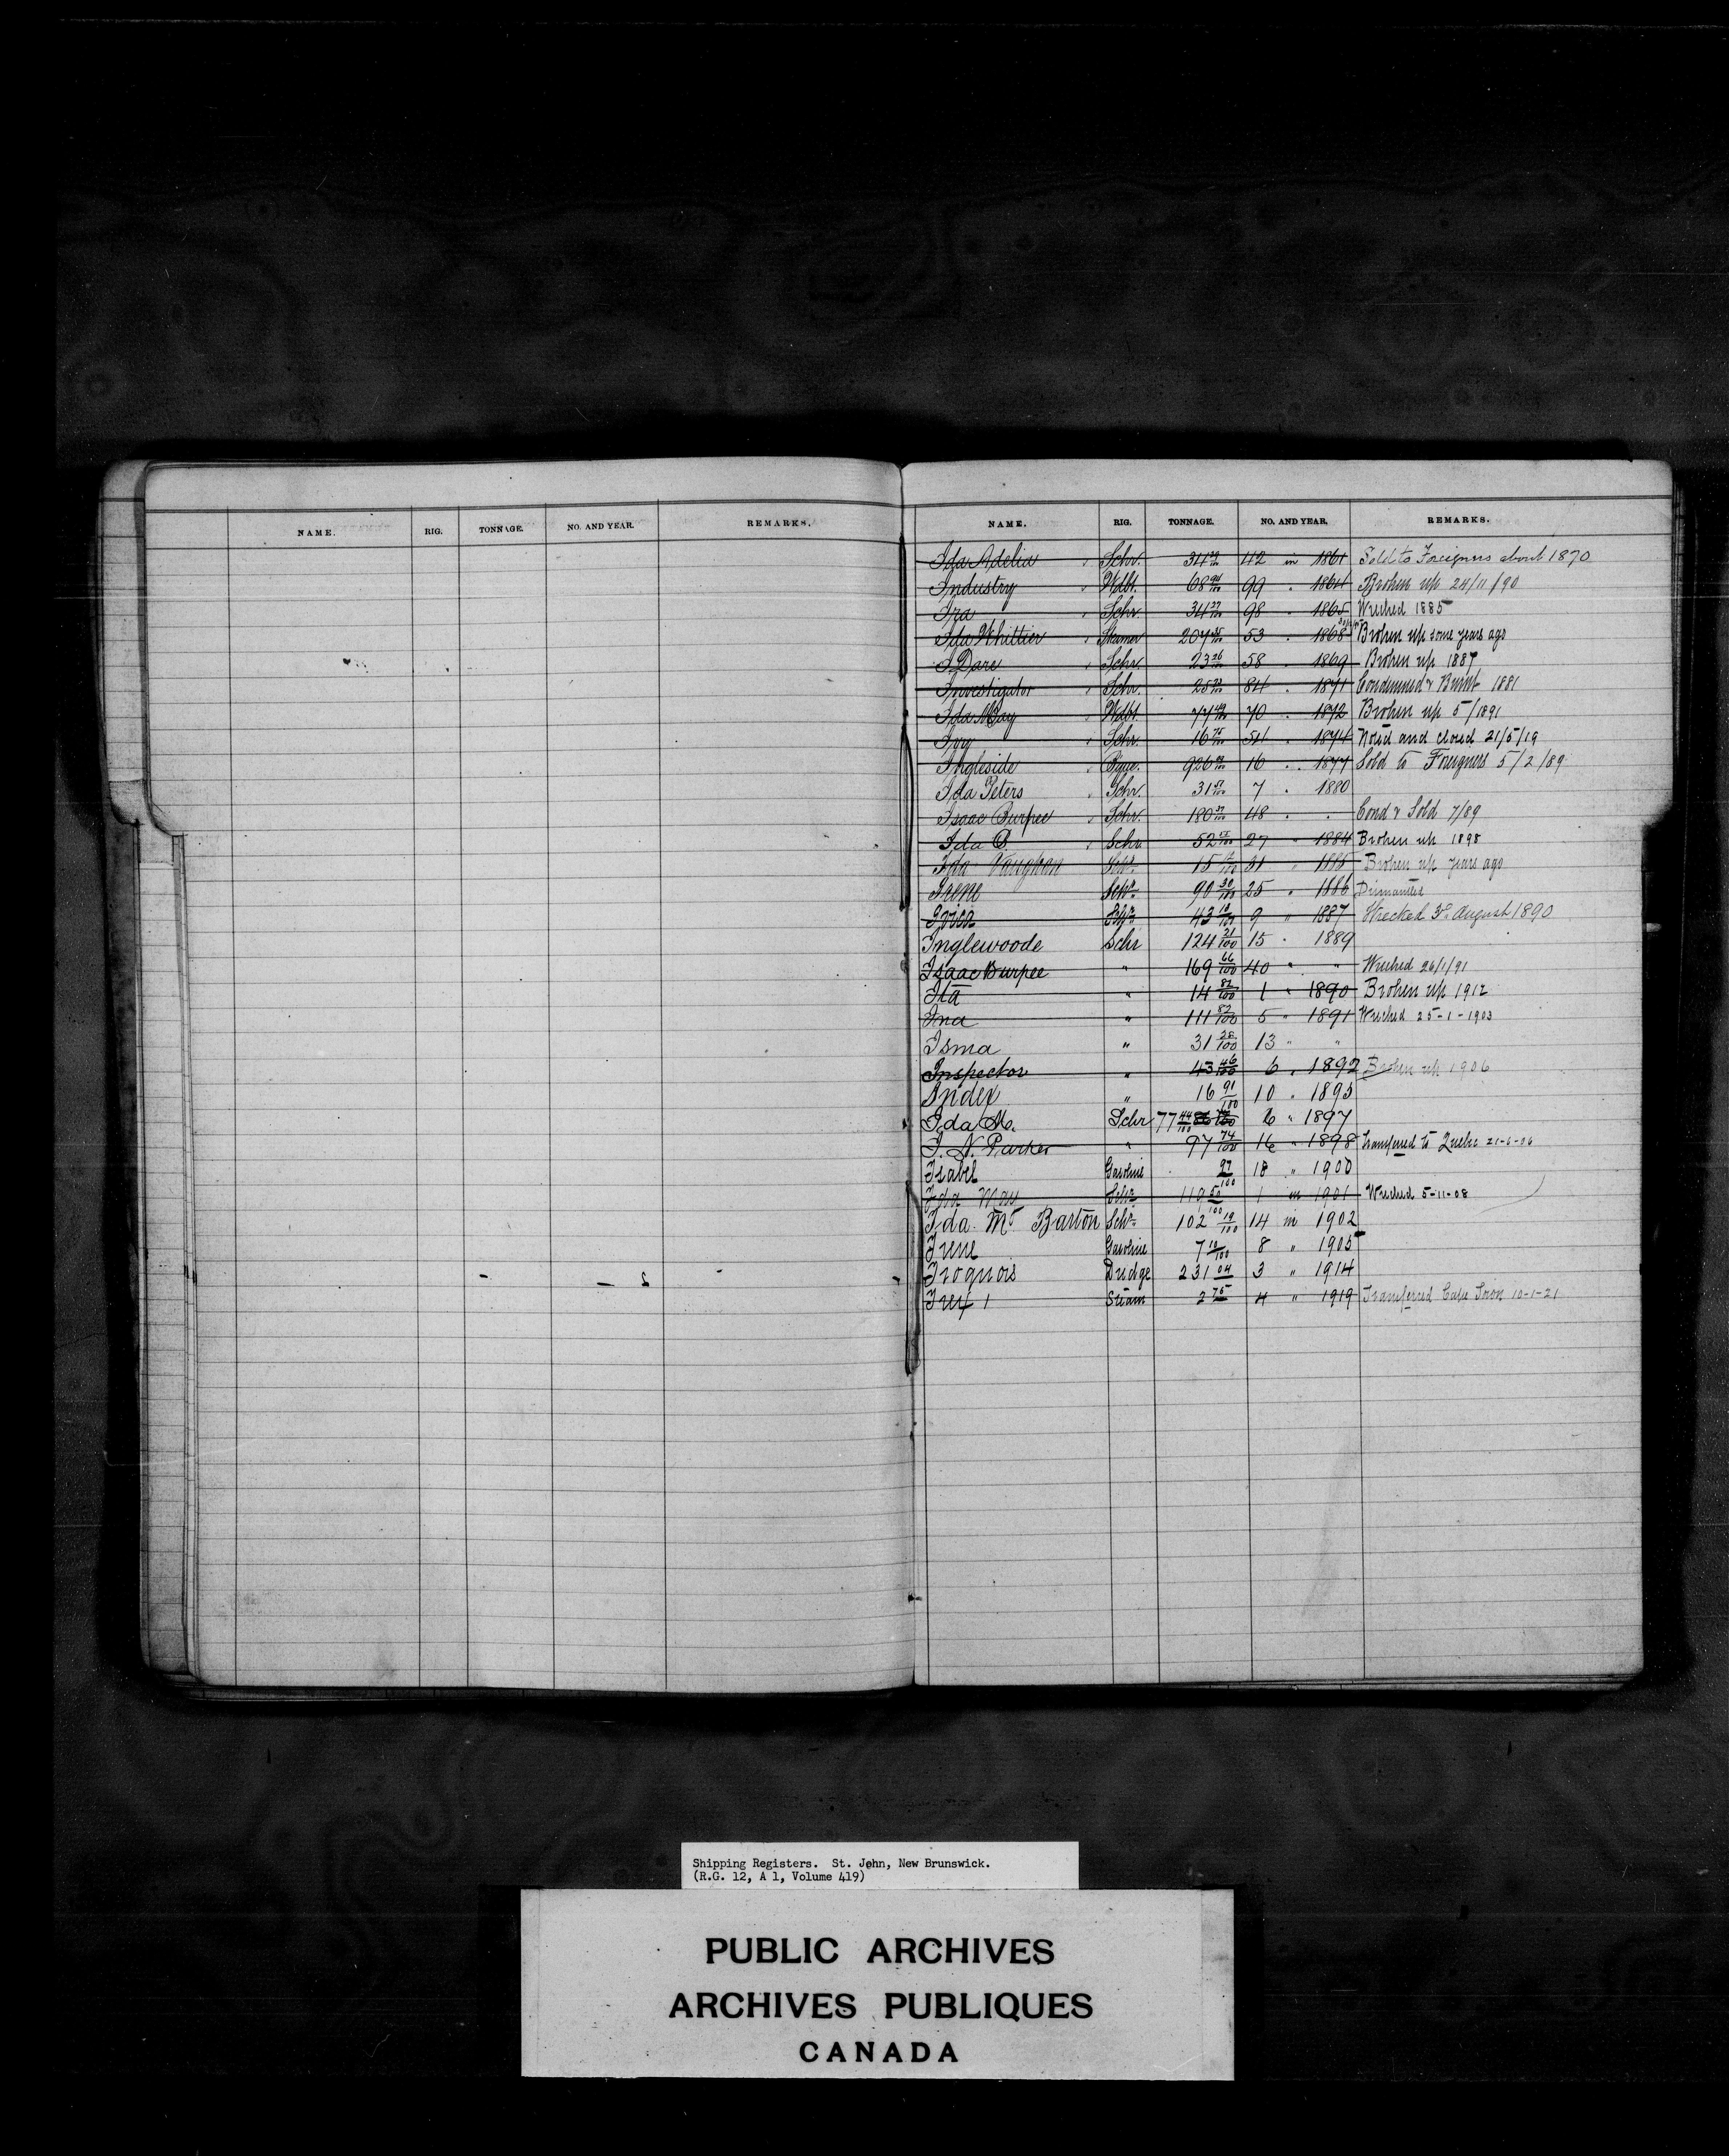 NAME. RIG. TONNAGE. NO. AND YEAR. REMARKS.
NAME. RIG. TONNAGE. NO. AND YEAR. REMARKS.
Ida Adelia Schr. 34 42 in 1861 Sold to Foreigners about 1870
Industry Wdbt. 68 99 " 1864 Broken up 24/11/90
Ira Schr. 34 98 " 1865 Wrecked 1885
Ida Whittier Steamer 207 53 " 1868 Broken up some years ago
I. Dare Schr. 23 58 1869 Broken up 1887
Investigator Schr. 25 84 " 1871 Condemned & Burnt 1881
Ida May Wdbt. 77 70 " 1872 Broken up 5/1891
Ivy Schr. 16 54 " 1874 Noted and closed 21/5/19
Ingleside Bque. 926 16 " 1877 Sold to Foreigners 5/2/89
Ida Peters Schr. 31 7 " 1880
Isaac Burpee Schr. 180 48 " " Cond & Sold 7/89
Ida B. Schr. 52 27 " 1884 Broken up 1898
Ida Vaughan Schr. 15 31 " 1885 Broken up years ago
Irene Schr. 90 30/100 25 " 1886 Dismantled
Schr. 43 10/100 9 " 1887 Wrecked August 1890
Inglewoode Schr 124 21/100 15 " 1889
Isaac Burpee " 169 66/100 40 " " Wrecked 26/1/91
Ita " 14 82/100 1 " 1890 Broken up 1912
Ina " 111 82/100 5 " 1891 Wrecked 25-1-1903
Isma " 31 28/100 13 " "
Inspector " 43 46/100 6 " 1892 Broken up 1906
Index " 16 91/100 10 " 1895
Ida M. Schr 77 44/100 6 " 1897
I. N. Parker " 97 74/100 16 " 1898 Transferred to Quebec 21-6-06
Isabel Gasoline 97/100 18 " 1900
Ida May Schr 119 50/100 1 in 1901 Wrecked 5-11-08
Ida M. Barton Schr. 102 19/100 14 in 1902
Irene Gasoline 7 10/100 8 " 1905
Iroquois Dredge 231 04 3 " 1914
Irex 1 Steam 2 75 4 " 1919 Transferred Cape Town 10-1-21
Shipping Registers. St. John, New Brunswick.
(R.G. 12, A 1, Volume 419)
PUBLIC ARCHIVES
ARCHIVES PUBLIQUES
CANADA